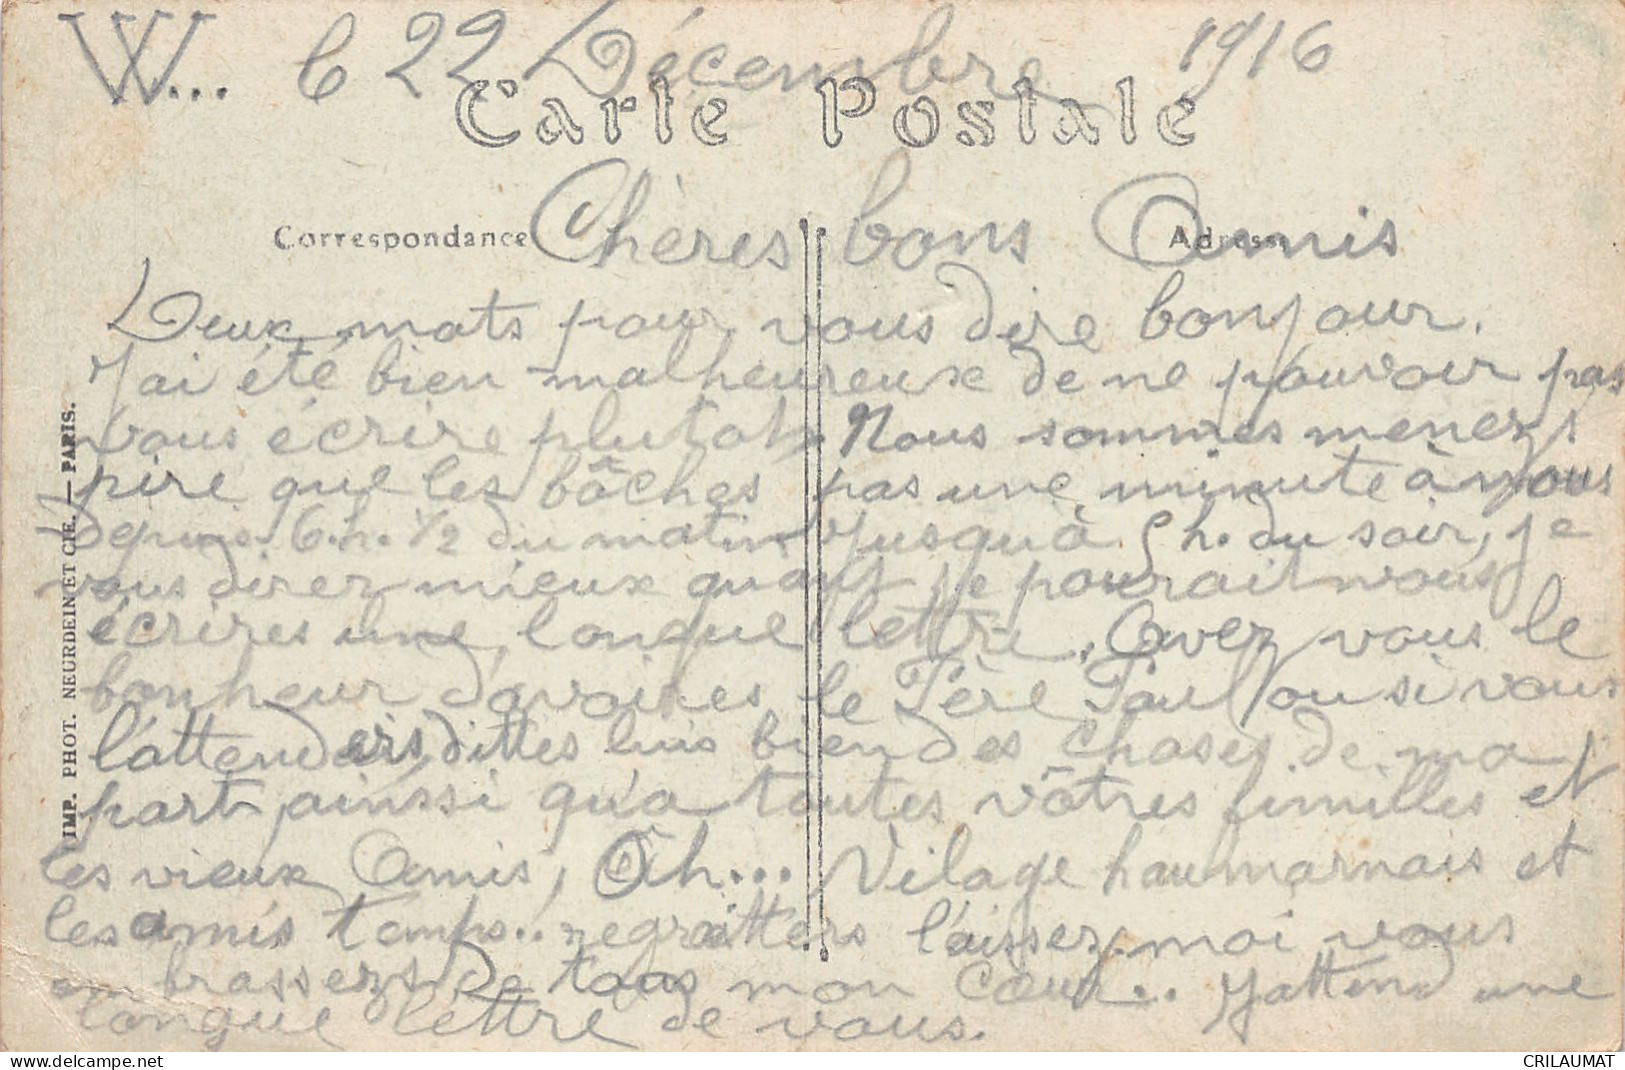 W... le 22 Décembre 1916
Carte Postale
Correspondance
Adresse
Chères bons Amis
Deux mots pour vous dire bonjour.
J'ai été bien malheureuse de ne pouvoir pas
vous écrire plutot. Nous sommes meners
pire que les bâches pas une minute à nous
Depuis 6.h. 1/2 du matin jusqu'à 5 h. du soir, je
vous direz mieux quant je pourait vous
écrires une longue lettre. Avez vous le
bonheur d'avoires le Père Paul ou si vous
l'attenders, dittes luis bien des choses de ma
part ainssi qu'a toutes vôtres familles et
les vieux Amis, Oh... Vilage haumarnais et
les amis temps.. regraitters l'aissez moi vous
embrassers de tous mon Cœur.. J'attend une
longue lettre de vous.
IMP. PHOT. NEURDEIN ET CIE. — PARIS.
delcampe.net
CRILAUMAT